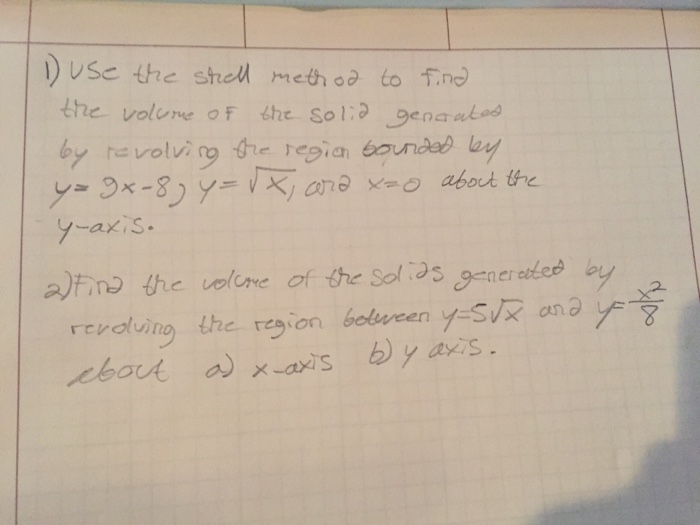 1) Use the shell method to find
the volume of the solid generated
by revolving the region bounded by
y = 9x-8, y = √x, and x=0 about the
y-axis.
2) Find the volume of the solids generated by
revolving the region between y=5√x and y=x²/8
about a) x-axis b) y axis.